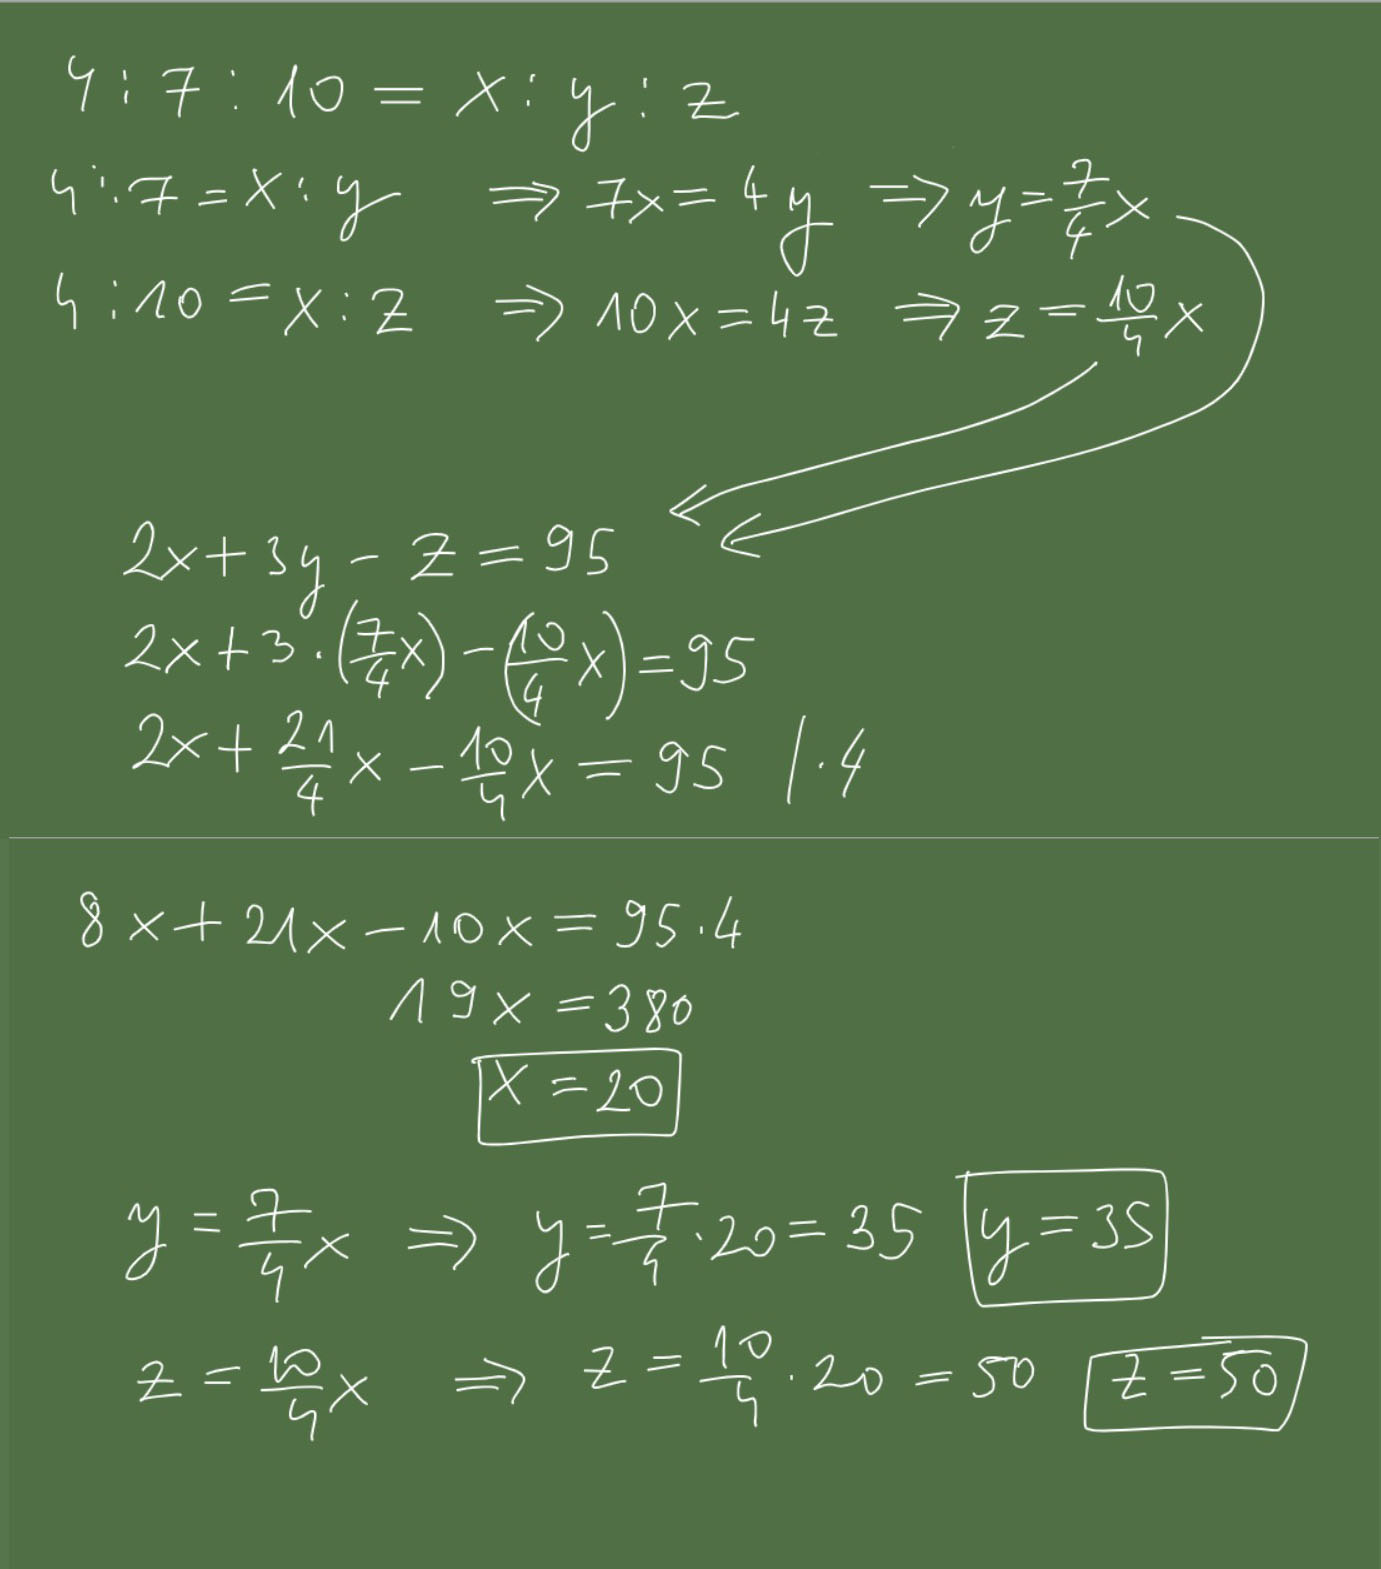 4 : 7 : 10 = x : y : z
4 : 7 = x : y ⇒ 7x = 4y ⇒ y = 7/4 x
4 : 10 = x : z ⇒ 10x = 4z ⇒ z = 10/4 x
2x + 3y - z = 95
2x + 3 · (7/4 x) - (10/4 x) = 95
2x + 21/4 x - 10/4 x = 95 / · 4
8x + 21x - 10x = 95 · 4
19x = 380
x = 20
y = 7/4 x ⇒ y = 7/4 · 20 = 35 y = 35
z = 10/4 x ⇒ z = 10/4 · 20 = 50 z = 50